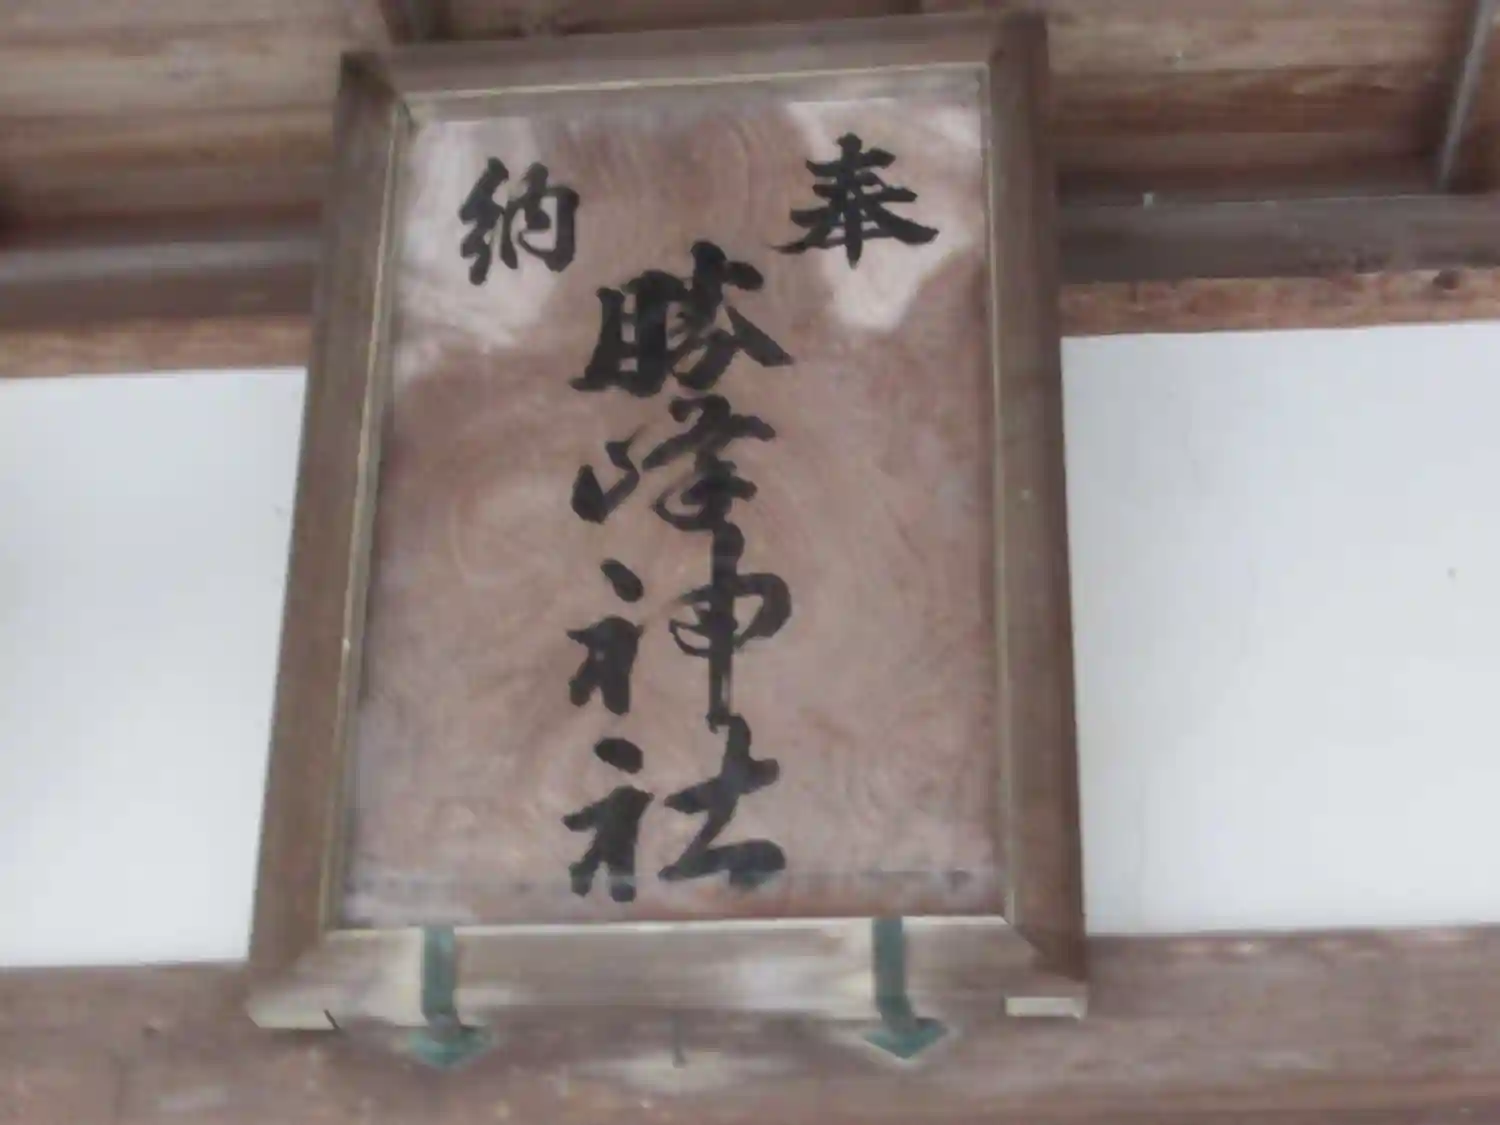 奉納
勝峰神社